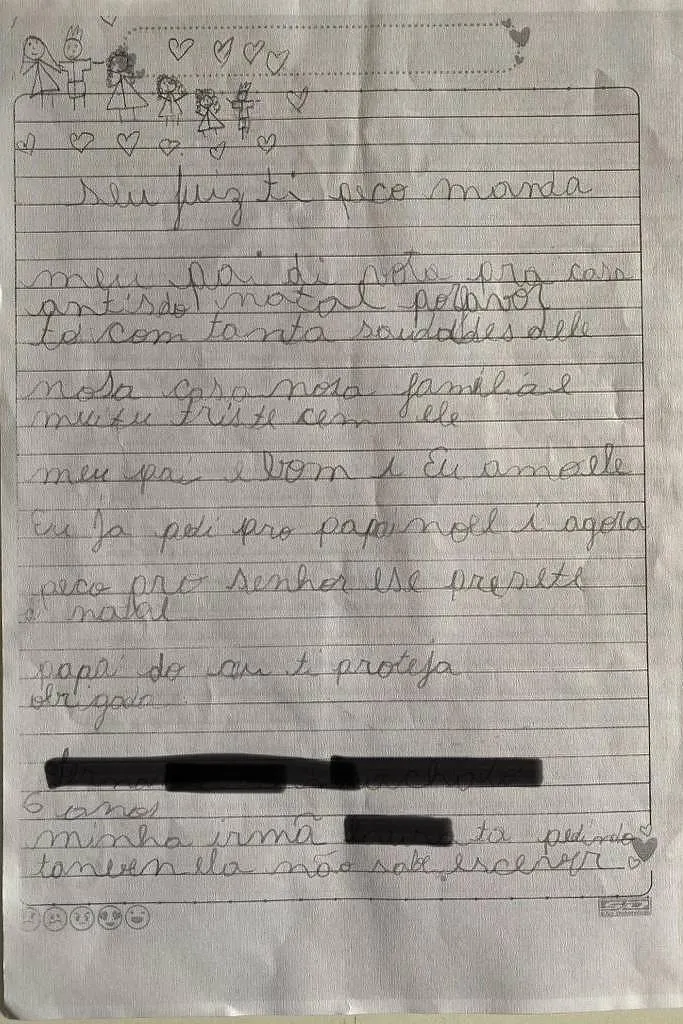 seu juiz ti peco manda
meu pai di vota pra casa
antisdo natal porfavor
to com tanta saudades dele
nosa casa nosa familia e
muitu triste cem ele
meu pai e bom i Eu amo ele
Eu ja pedi pro papai noel i agora
peco pro senhor ese presete
natal
papai do ceu ti proteja
obrigado
6 anos
minha irmã ta pedindo
tanven ela não sabe escever